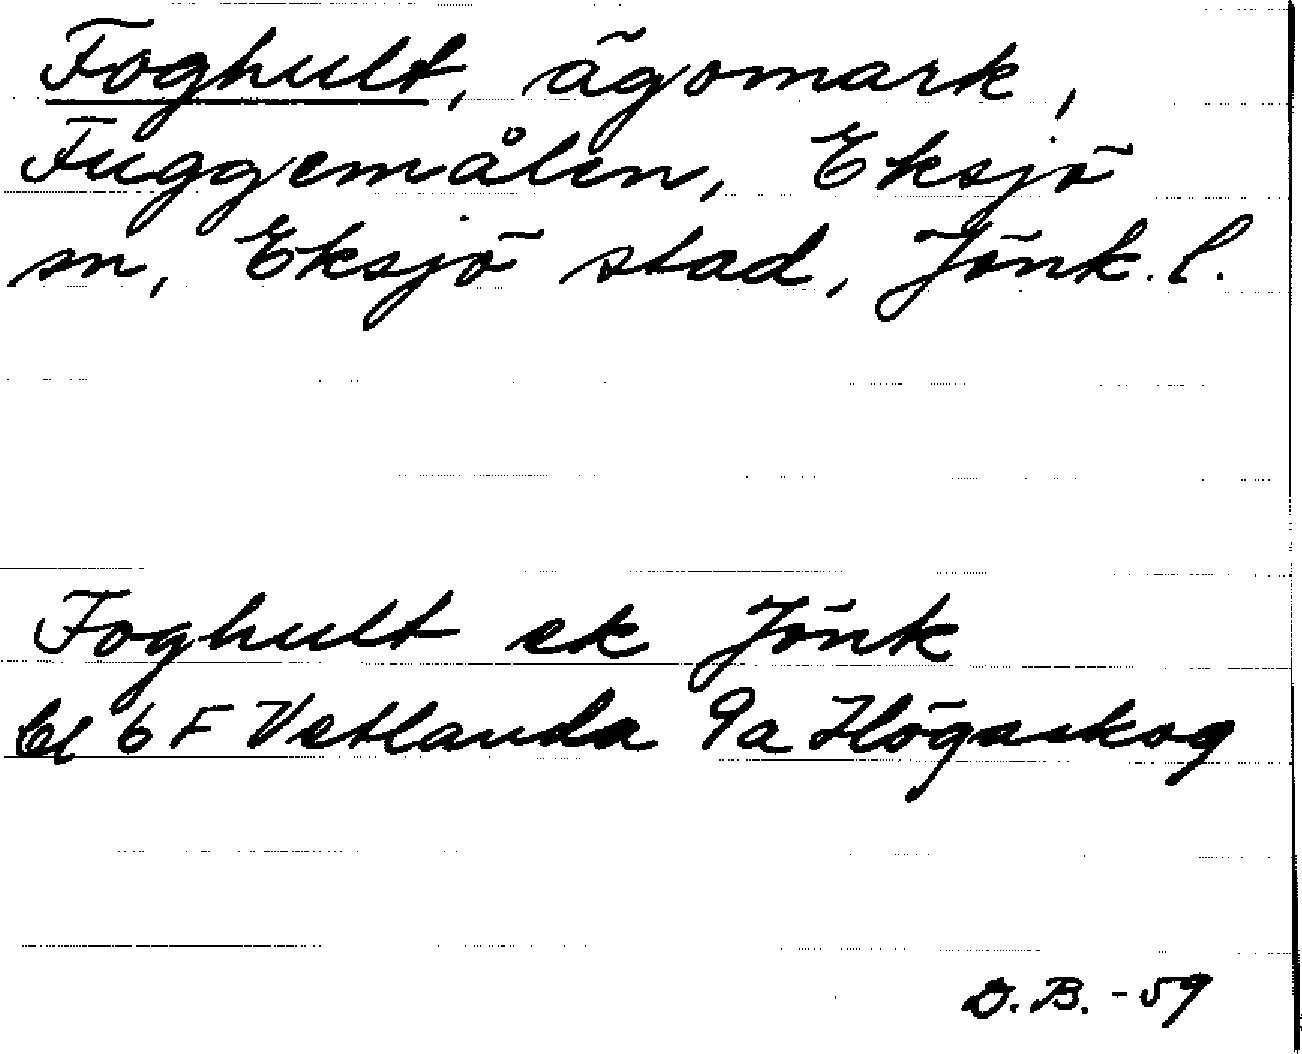 Foghult, ägomark,
Fuggemålen, Eksjö
sn, Eksjö stad, Jönk. l.
Foghult ek Jönk
bl 6 F Vetlanda 9a Högaskog
D.B. -59